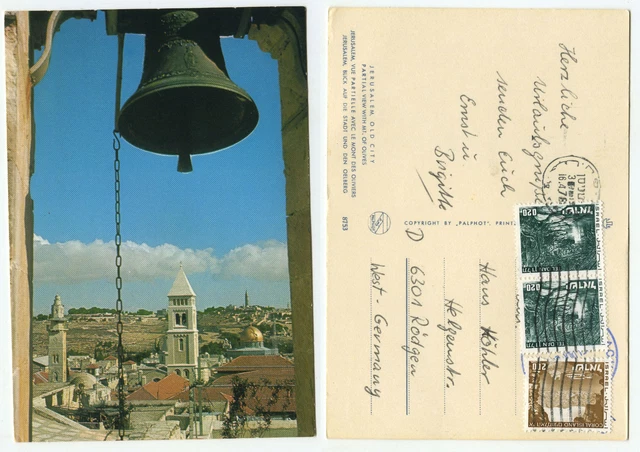 JERUSALEM, OLD CITY
PARTIAL VIEW WITH MT. OF OLIVES
JERUSALEM, VUE PARTIELLE AVEC LE MONT DES OLIVIERS
JERUSALEM, BLICK AUF DIE STADT UND DEN OELBERG
8753
COPYRIGHT BY "PALPHOT", PRINTE
Herzliche
Urlaubsgrüße
senden Euch
Ernst u
Birgitte
Hans Köhler
Helgenstr.
D 6301 Rödgen
West-Germany
ISRAEL
ישראל
0.20
ישראל
0.20
ISRAEL
ישראל
2.10
CORAL ISLAND